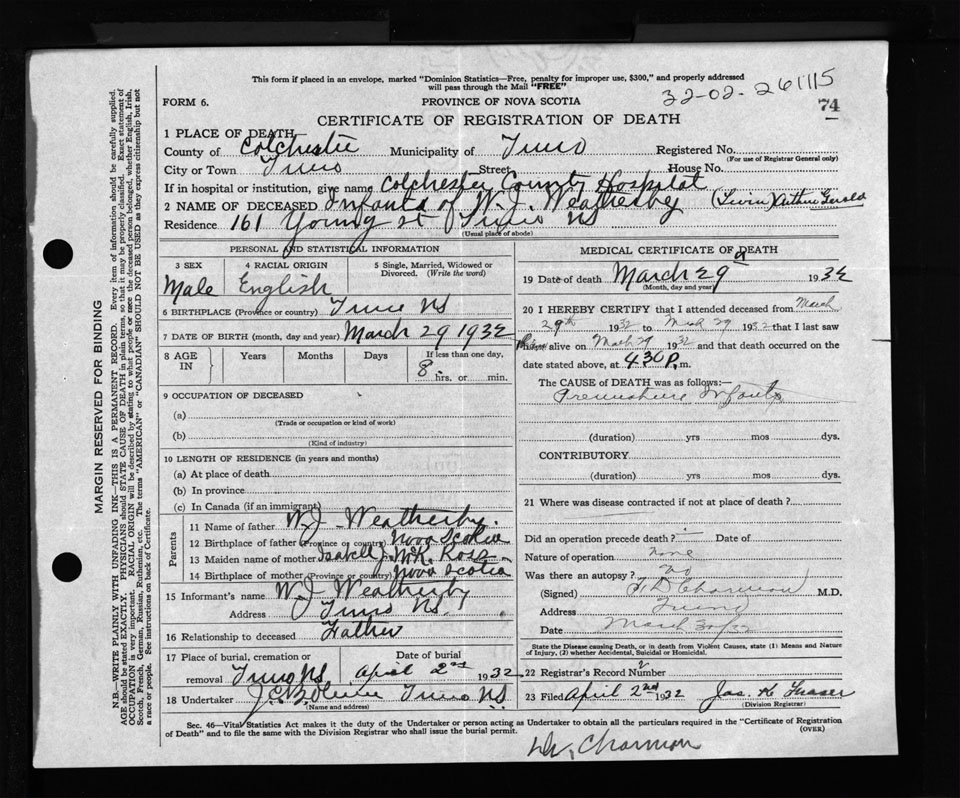 This form if placed in an envelope, marked "Dominion Statistics—Free, penalty for improper use, $300," and properly addressed
will pass through the Mail "FREE"
32-02-261115
FORM 6.
PROVINCE OF NOVA SCOTIA
74
CERTIFICATE OF REGISTRATION OF DEATH
1 PLACE OF DEATH
County of Colchester Municipality of Truro Registered No.
(For use of Registrar General only)
City or Town Truro Street House No.
If in hospital or institution, give name Colchester County Hospital
2 NAME OF DECEASED Infant of W. J. Weatherby (Twin) Arthur Gerald
Residence 161 Young st Truro NS
(Usual place of abode)
PERSONAL AND STATISTICAL INFORMATION
3 SEX Male
4 RACIAL ORIGIN English
5 Single, Married, Widowed or Divorced. (Write the word)
6 BIRTHPLACE (Province or country) Truro NS
7 DATE OF BIRTH (month, day and year) March 29 1932
8 AGE IN Years Months Days If less than one day, 8 hrs. or min.
9 OCCUPATION OF DECEASED
(a)
(Trade or occupation or kind of work)
(b)
(Kind of industry)
10 LENGTH OF RESIDENCE (in years and months)
(a) At place of death
(b) In province
(c) In Canada (if an immigrant)
Parents
11 Name of father W. J. Weatherby.
12 Birthplace of father (Province or country) Nova Scotia
13 Maiden name of mother Isabell J. McK. Ross
14 Birthplace of mother (Province or country) Nova Scotia
15 Informant's name W. J. Weatherby
Address Truro NS.
16 Relationship to deceased Father
17 Place of burial, cremation or removal Truro NS Date of burial April 2nd 1932
18 Undertaker Truro NS.
(Name and address)
MEDICAL CERTIFICATE OF DEATH
19 Date of death March 29 1932
(Month, day and year)
20 I HEREBY CERTIFY that I attended deceased from March
29th 1932 to March 29 1932 that I last saw
him alive on March 29 1932 and that death occurred on the
date stated above, at 4 30 P. m.
The CAUSE OF DEATH was as follows:
Premature Infant
(duration) yrs mos dys.
CONTRIBUTORY
(duration) yrs mos dys.
21 Where was disease contracted if not at place of death?
Did an operation precede death? Date of
Nature of operation none
Was there an autopsy? no
(Signed) M.D.
Address Truro
Date March 30/32
State the Disease causing Death, or in death from Violent Causes, state (1) Means and
Nature of Injury, (2) whether Accidental, Suicidal or Homicidal.
22 Registrar's Record Number
23 Filed April 2nd 1932 Jas. K. Fraser
(Division Registrar)
Sec. 46—Vital Statistics Act makes it the duty of the Undertaker or person acting as Undertaker to obtain all the particulars required in the "Certificate of Registration
of Death" and to file the same with the Division Registrar who shall issue the burial permit.
(OVER)
MARGIN RESERVED FOR BINDING
N.B.—WRITE PLAINLY, WITH UNFADING INK—THIS IS A PERMANENT RECORD. Every item of information should be carefully supplied.
AGE should be stated EXACTLY. PHYSICIANS should STATE CAUSE OF DEATH in plain terms, so that it may be properly classified. Exact statement of
OCCUPATION is very important. RACIAL ORIGIN will be described by stating to what people or race the deceased person belonged, whether English, Irish,
Scotch, French, German, Russian, Ruthenian, etc. The terms "AMERICAN" or "CANADIAN" SHOULD NOT BE USED as they express citizenship but not
a race or people. See instructions on back of Certificate.